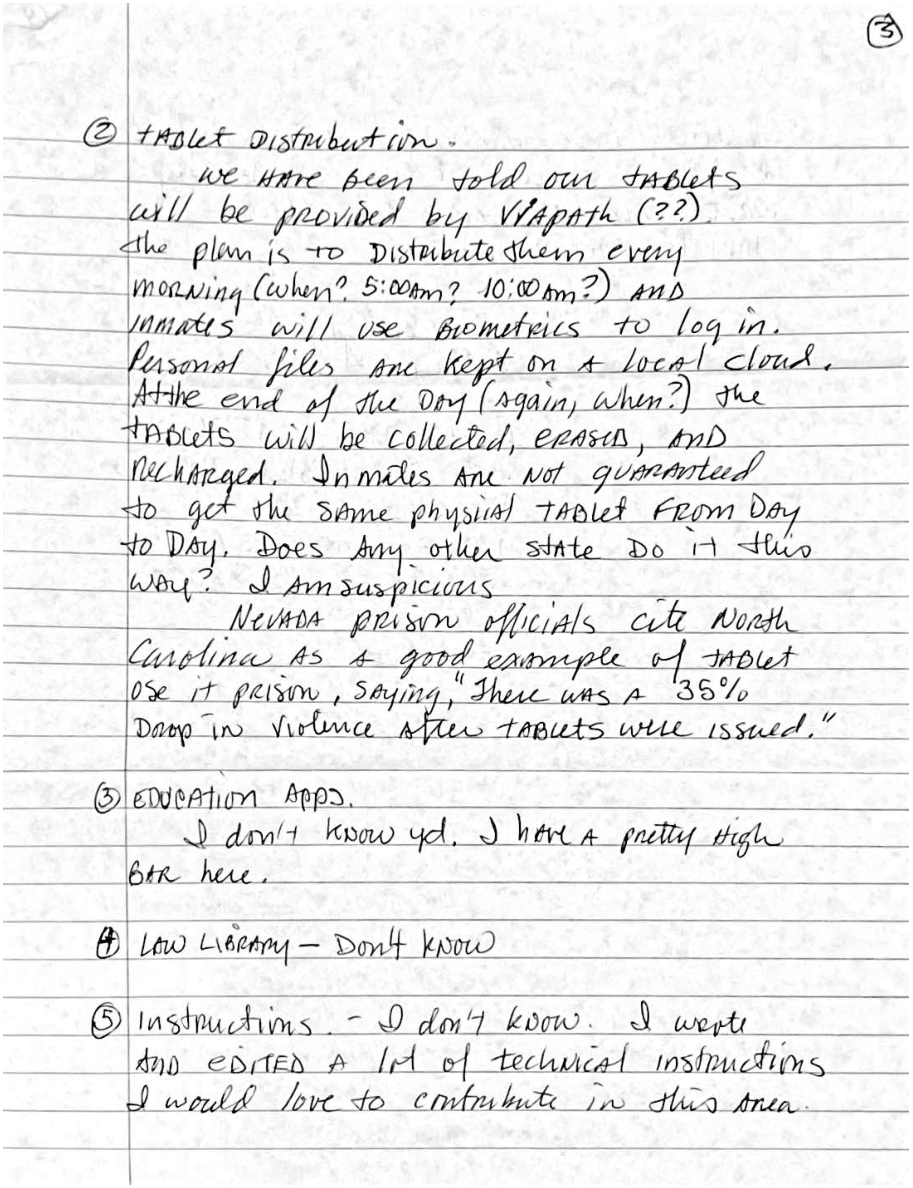 ③
② TABLET DISTRIBUTION.
WE HAVE BEEN told our TABLETS
will be PROVIDED by VIAPATH (??).
the plan is to DISTRIBUTE them every
MORNING (when? 5:00AM? 10:00 AM?) AND
INMATES will USE BIOMETRICS to log in.
Personal files are kept on A LOCAL cloud.
At the end of the DAY (Again, when?) the
TABLETS will be collected, ERASED, AND
RECHARGED. Inmates are NOT GUARANTEED
to get the SAME physical TABLET FROM DAY
to DAY. Does Any other STATE DO it this
WAY? I AM suspicious
NEVADA prison officials cite North
Carolina AS A good example of TABLET
USE it prison, SAYING, "There WAS A 35%
Drop in violence After TABLETS were issued."
③ EDUCATION Apps.
I don't know yet. I have A pretty High
BAR here.
④ LAW LIBRARY - Don't know
⑤ Instructions. - I don't know. I wrote
AND EDITED A lot of technical instructions
I would love to contribute in this Area.